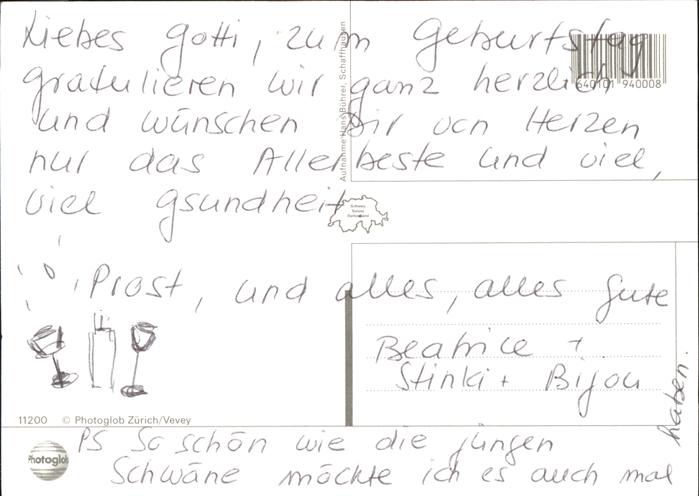 Liebes Gotti, zum Geburtstag
gratulieren wir ganz herzlich
und wünschen Dir von Herzen
nur das Allerbeste und viel,
viel gsundheit
Prost, und alles, alles Gute
Beatrice +
Stinki + Bijou
PS So schön wie die jungen
Schwäne möchte ich es auch mal
haben.
Aufnahme Hans Bührer, Schaffhausen
640101 940008
11200 © Photoglob Zürich/Vevey
Photoglob